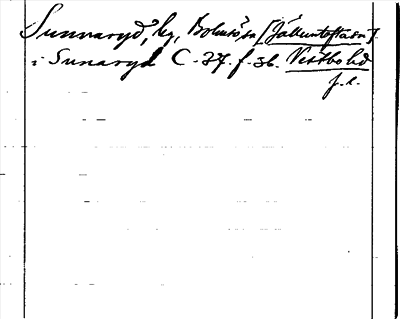 Sunnaryd, by, Bolmsö sn [Jälluntofta sn].
i Sunaryd C. 37. f. 36. Västbo hd
f. d.